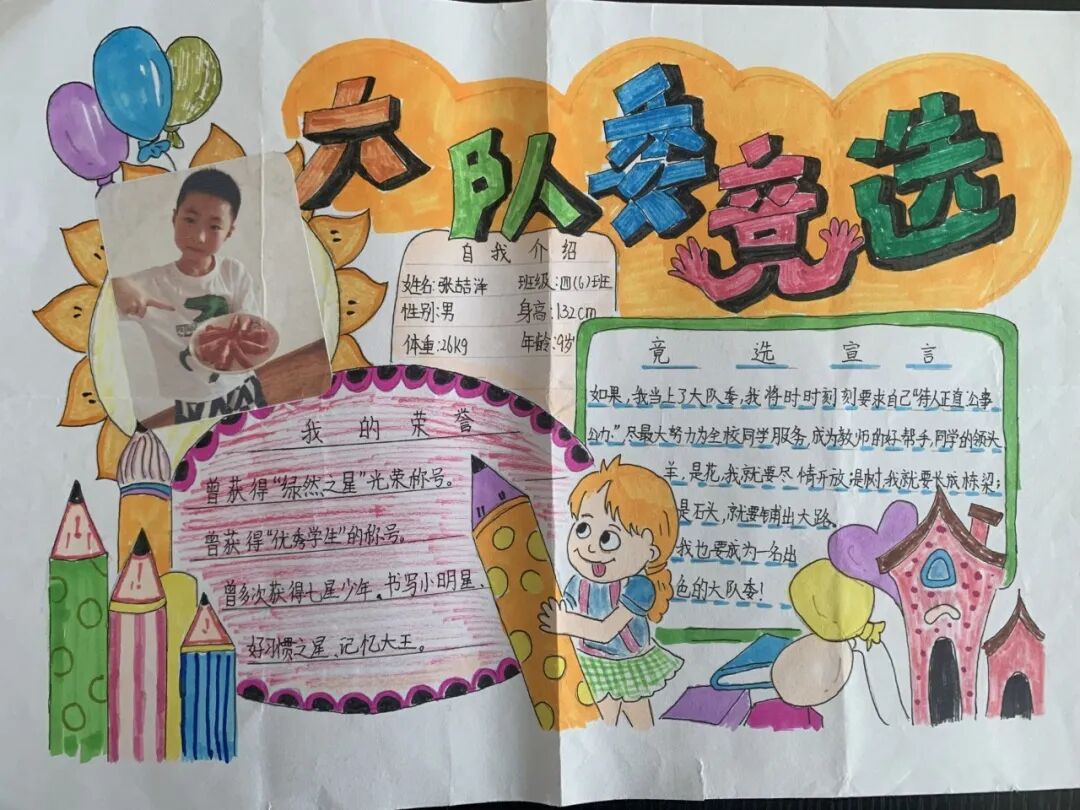 大队委竞选
自我介绍
姓名:张喆洋 班级:四(6)班
性别:男 身高:132cm
体重:26kg 年龄:9岁
竟选宣言
如果,我当上了大队委,我将时时刻刻要求自己"待人正直公事
公办."尽最大努力为全校同学服务,成为教师的好帮手,同学的领头
羊,是花,我就要尽情开放;是树,我就要长成栋梁;
是石头,就要铺出大路。
我也要成为一名出
色的大队委!
我的荣誉
曾获得"绿然之星"光荣称号。
曾获得"优秀学生"的称号。
曾多次获得七星少年、书写小明星、
好习惯之星、记忆大王。